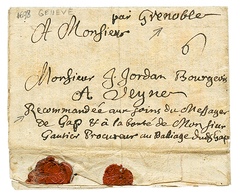 1698 GENEVE
par Grenoble
A Monsieur
6
Monsieur J. Jordan Bourgeois
A Veyne
Recommandée aux soins du Messager
de Gap & a la bonté de Monsieur
Gautier Procureur au Balliage dud. Gap